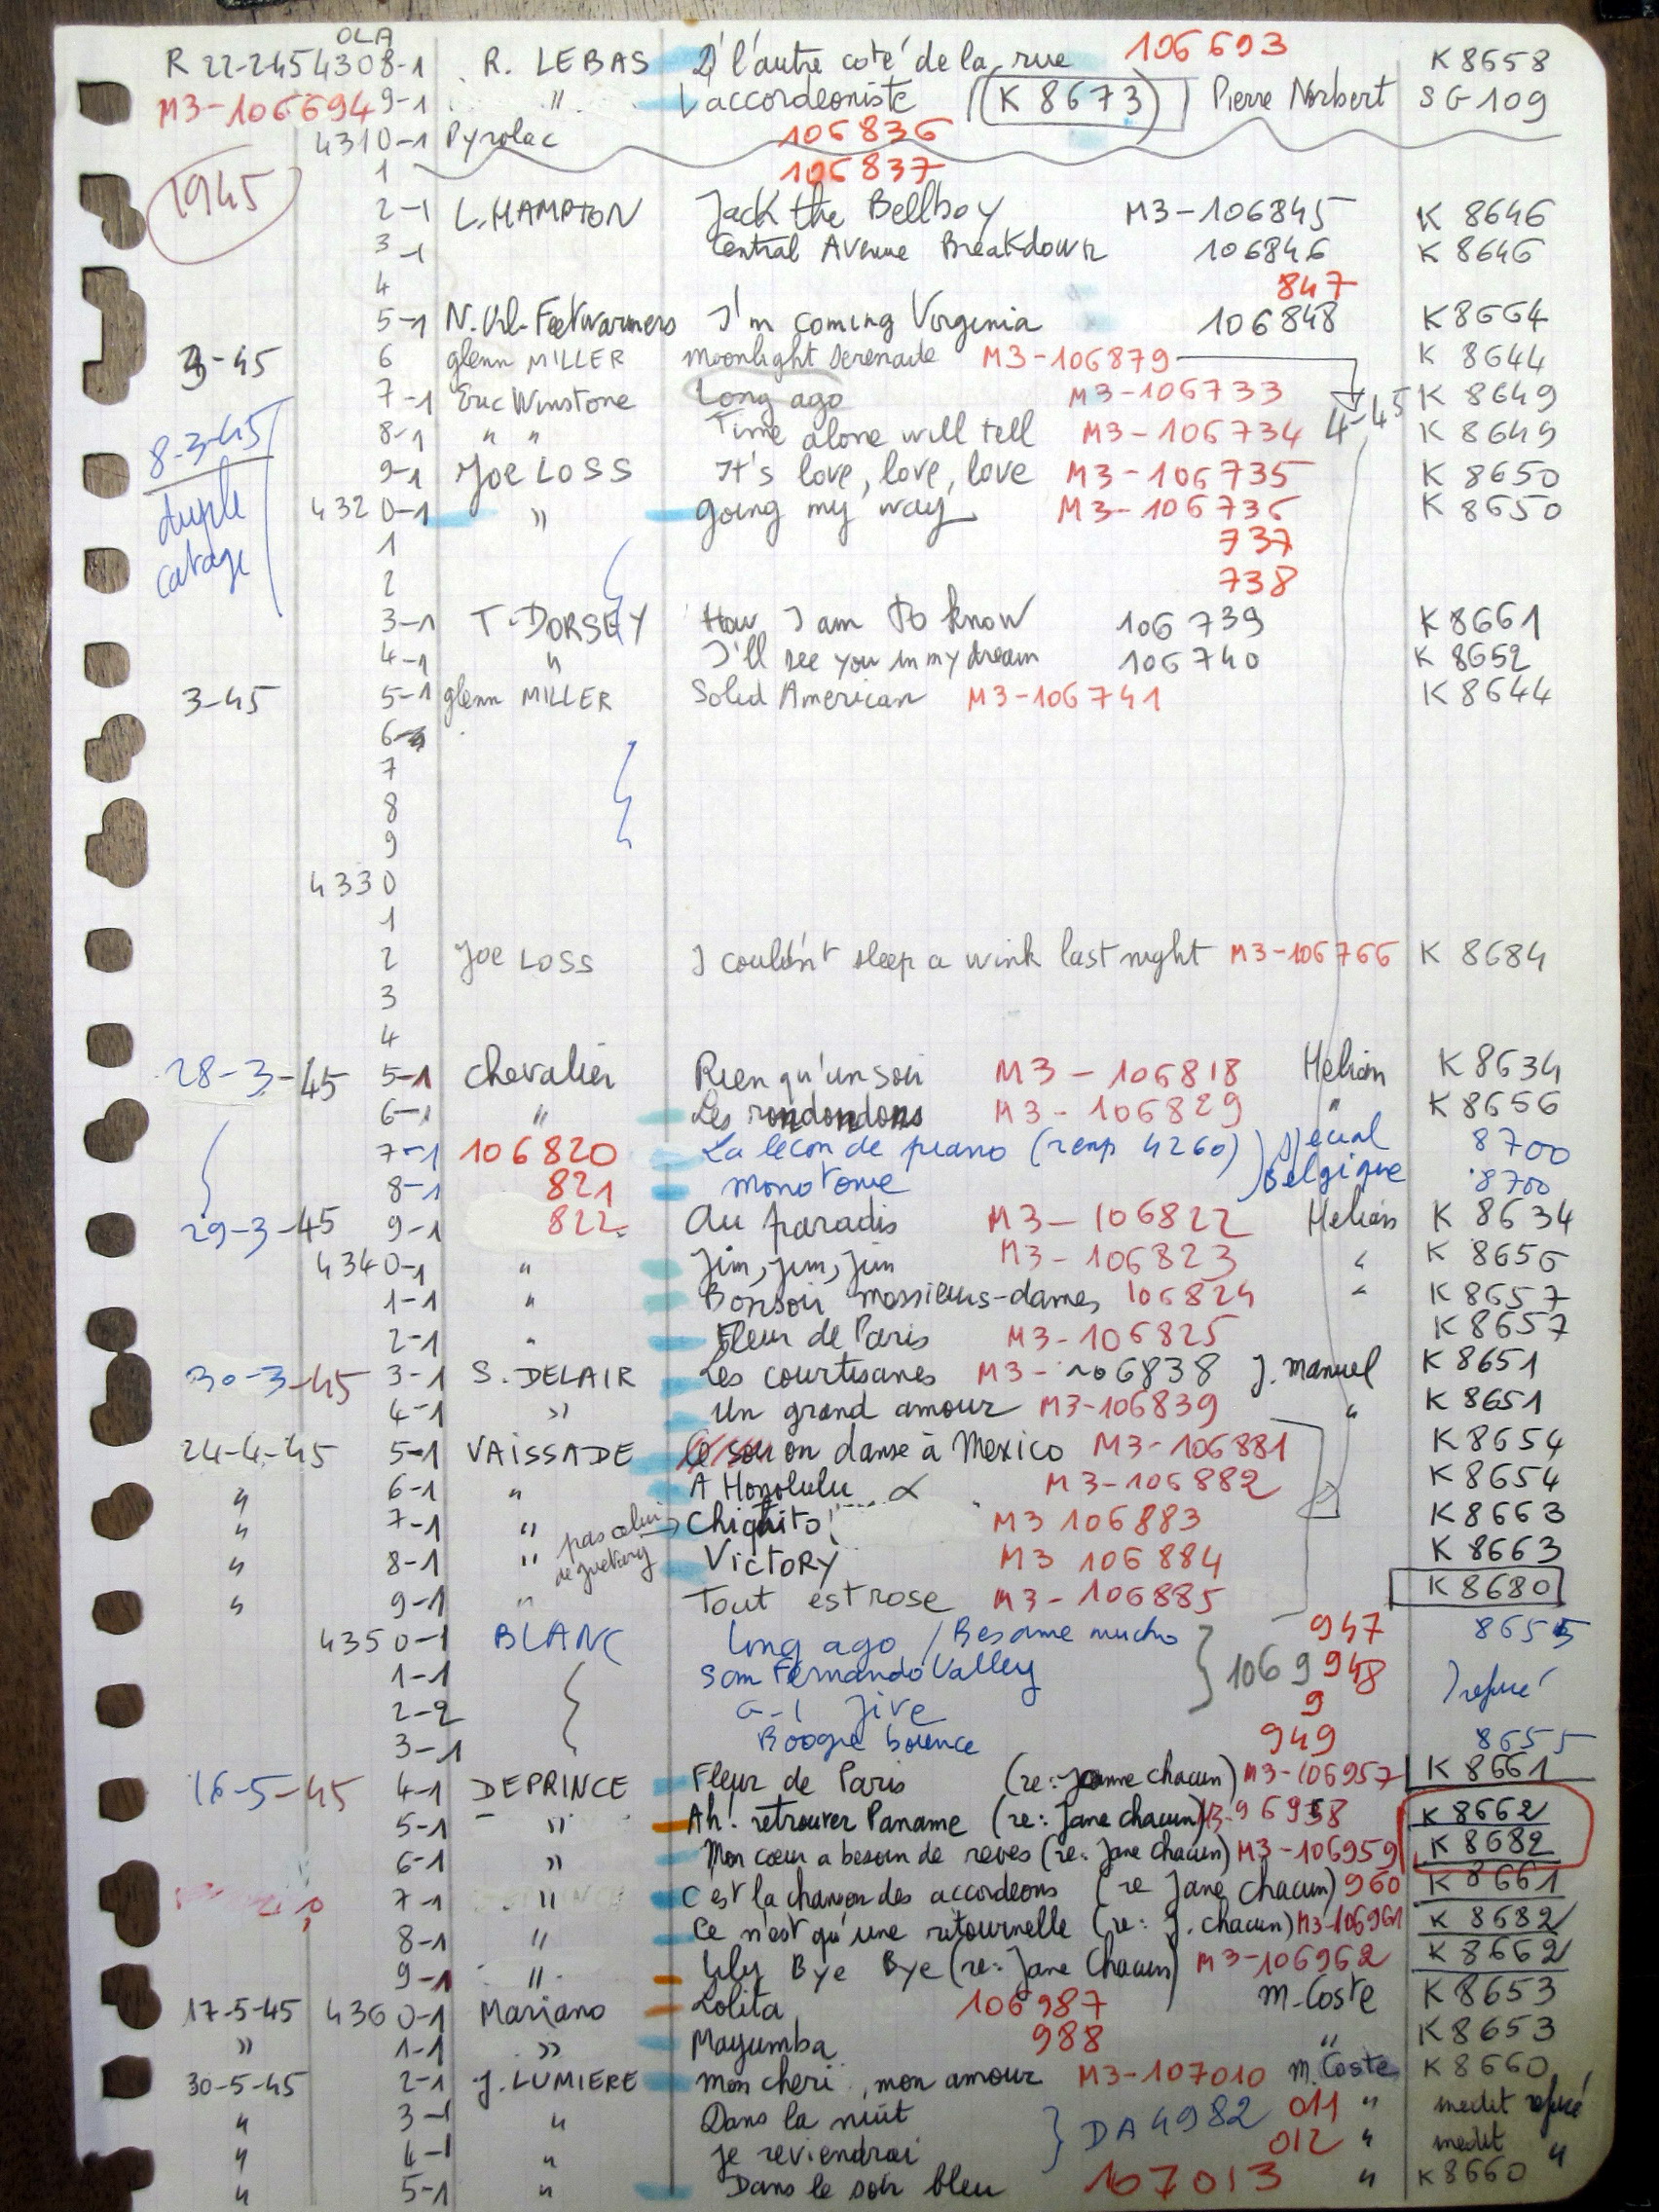 OLA
R 22-245 4308-1 R. LEBAS D' l'autre coté de la rue 106693 K 8658
M3-106694 9-1 " L'accordeoniste (K 8673) Pierre Norbert SG 109
4310-1 Pyrolac 106836
1 106837
1945
2-1 L. HAMPTON Jack the Bellboy M3-106845 K 8646
3-1 Central Avenue Breakdown 106846 K 8646
4 847
5-1 N. Orl. Feetwarmers I'm coming Virginia 106848 K 8664
3-45 6 glenn MILLER moonlight serenade M3-106879 K 8644
7-1 Eric Winstone Long ago M3-106733 4-45 K 8649
8-3-45 8-1 " " Time alone will tell M3-106734 K 8649
9-1 Joe LOSS It's love, love, love M3-106735 K 8650
4320-1 " going my way M3-106736 K 8650
1 737
2 738
3-1 T. DORSEY How I am to know 106739 K 8661
4-1 " I'll see you in my dream 106740 K 8652
3-45 5-1 glenn MILLER Solid American M3-106741 K 8644
6
7
8
9
4330
1
2 Joe LOSS I couldn't sleep a wink last night M3-106766 K 8684
3
4
28-3-45 5-1 Chevalier Rien qu'un soir M3-106818 Helian K 8634
6-1 " Les rondondons M3-106829 " K 8656
7-1 106820 La lecon de piano (remp 4260) Special 8700
8-1 821 monotone Belgique 8700
29-3-45 9-1 822 Au paradis M3-106822 Helian K 8634
4340-1 " Jim, jim, jim M3-106823 " K 8656
1-1 " Bonsoir messieurs-dames 106824 " K 8657
2-1 " Fleur de Paris M3-106825 K 8657
30-3-45 3-1 S. DELAIR Les courtisanes M3-106838 J. Manuel K 8651
4-1 " Un grand amour M3-106839 " K 8651
24-4-45 5-1 VAISSADE Ce soir on danse à Mexico M3-106881 K 8654
" 6-1 " A Honolulu M3-106882 K 8654
" 7-1 " pas celui Chiquito! M3 106883 K 8663
" 8-1 " VICTORY M3 106884 K 8663
" 9-1 " Tout est rose M3-106885 K 8680
4350-1 BLANC Long ago / Besame mucho 947 8655
1-1 San Fernando Valley 1069 948 refusé
2-2 G-I Jive 9
3-1 Boogie bounce 949 8655
16-5-45 4-1 DEPRINCE Fleur de Paris (re: Jeanne chacun) M3-106957 K 8661
5-1 " Ah! retrouver Paname (re: Jane chacun) M3-96958 K 8662
6-1 " Mon cœur a besoin de reves (re: Jane chacun) M3-106959 K 8682
7-1 " C'est la chanson des accordeons (re Jane chacun) 960 K 8661
8-1 " Ce n'est qu'une ritournelle (re: J. chacun) M3-106961 K 8682
9-1 " Lily Bye Bye (re: Jane Chacun) M3-106962 K 8662
17-5-45 4360-1 Mariano Lolita 106987 M. Coste K 8653
" 1-1 " Mayumba 988 " K 8653
30-5-45 2-1 J. LUMIERE mon cheri, mon amour M3-107010 M. Coste K 8660
" 3-1 " Dans la nuit DA 4982 011 " inedit refusé
" 4-1 " je reviendrai 012 " inedit "
" 5-1 " Dans le soir bleu 107013 " K 8660